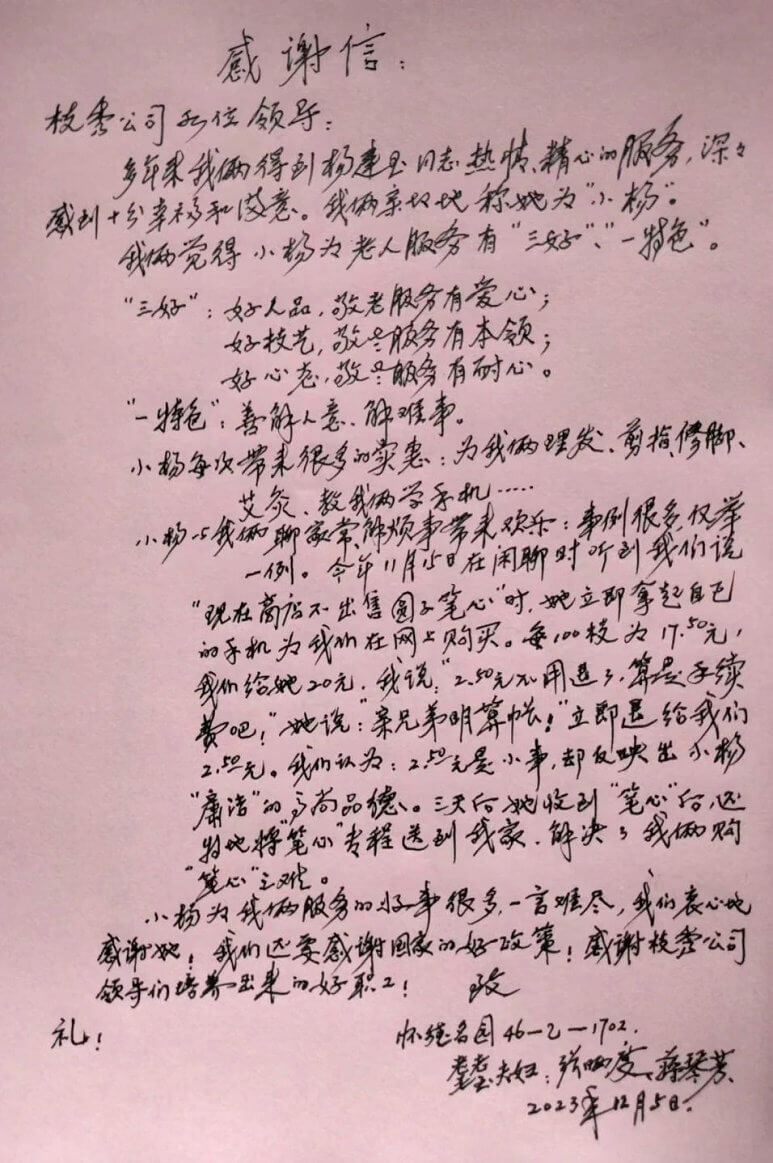 感谢信：
枝秀公司各位领导：
多年来我俩得到杨建玉同志热情、精心的服务，深々
感到十分幸福和满意。我俩亲切地称她为“小杨”。
我俩觉得小杨为老人服务有“三好”、“一特色”。
“三好”：好人品，敬老服务有爱心；
好技艺，敬老服务有本领；
好心态，敬老服务有耐心。
“一特色”：善解人意、解难事。
小杨每次带来很多的实惠：为我俩理发、剪指、修脚、
艾灸、教我俩学手机……
小杨与我俩聊家常、解烦事带来欢乐：事例很多，仅举
一例。今年11月15日在闲聊时听到我们说
“现在商店不出售圆子笔心”时，她立即拿起自己
的手机为我们在网上购买。每100枝为17.50元，
我们给她20元，我说：“2.50元不用退了，算是手续
费吧！”她说：“亲兄弟明算帐！”立即退给我们
2.50元。我们认为：2.50元是小事，却反映出小杨
“廉洁”的高尚品德。三天后她收到“笔心”后，还
特地将“笔心”专程送到我家，解决了我俩购
“笔心”之难。
小杨为我俩服务的好事很多，一言难尽，我们衷心地
感谢她！我们还要感谢国家的好政策！感谢枝秀公司
领导们培养出来的好职工！ 致
礼！
怀德名园46—乙—1702.
耄耋夫妇：张 度、蒋琴芳
2023年12月5日.